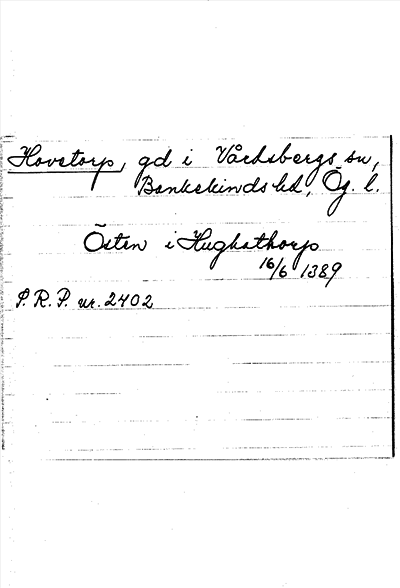 Hovetorp, gd i Vårdsbergs sn,
Bankekinds hd, Ög. l.
Östen i Hughathorp
16/6 1389
S.R.P. nr. 2402